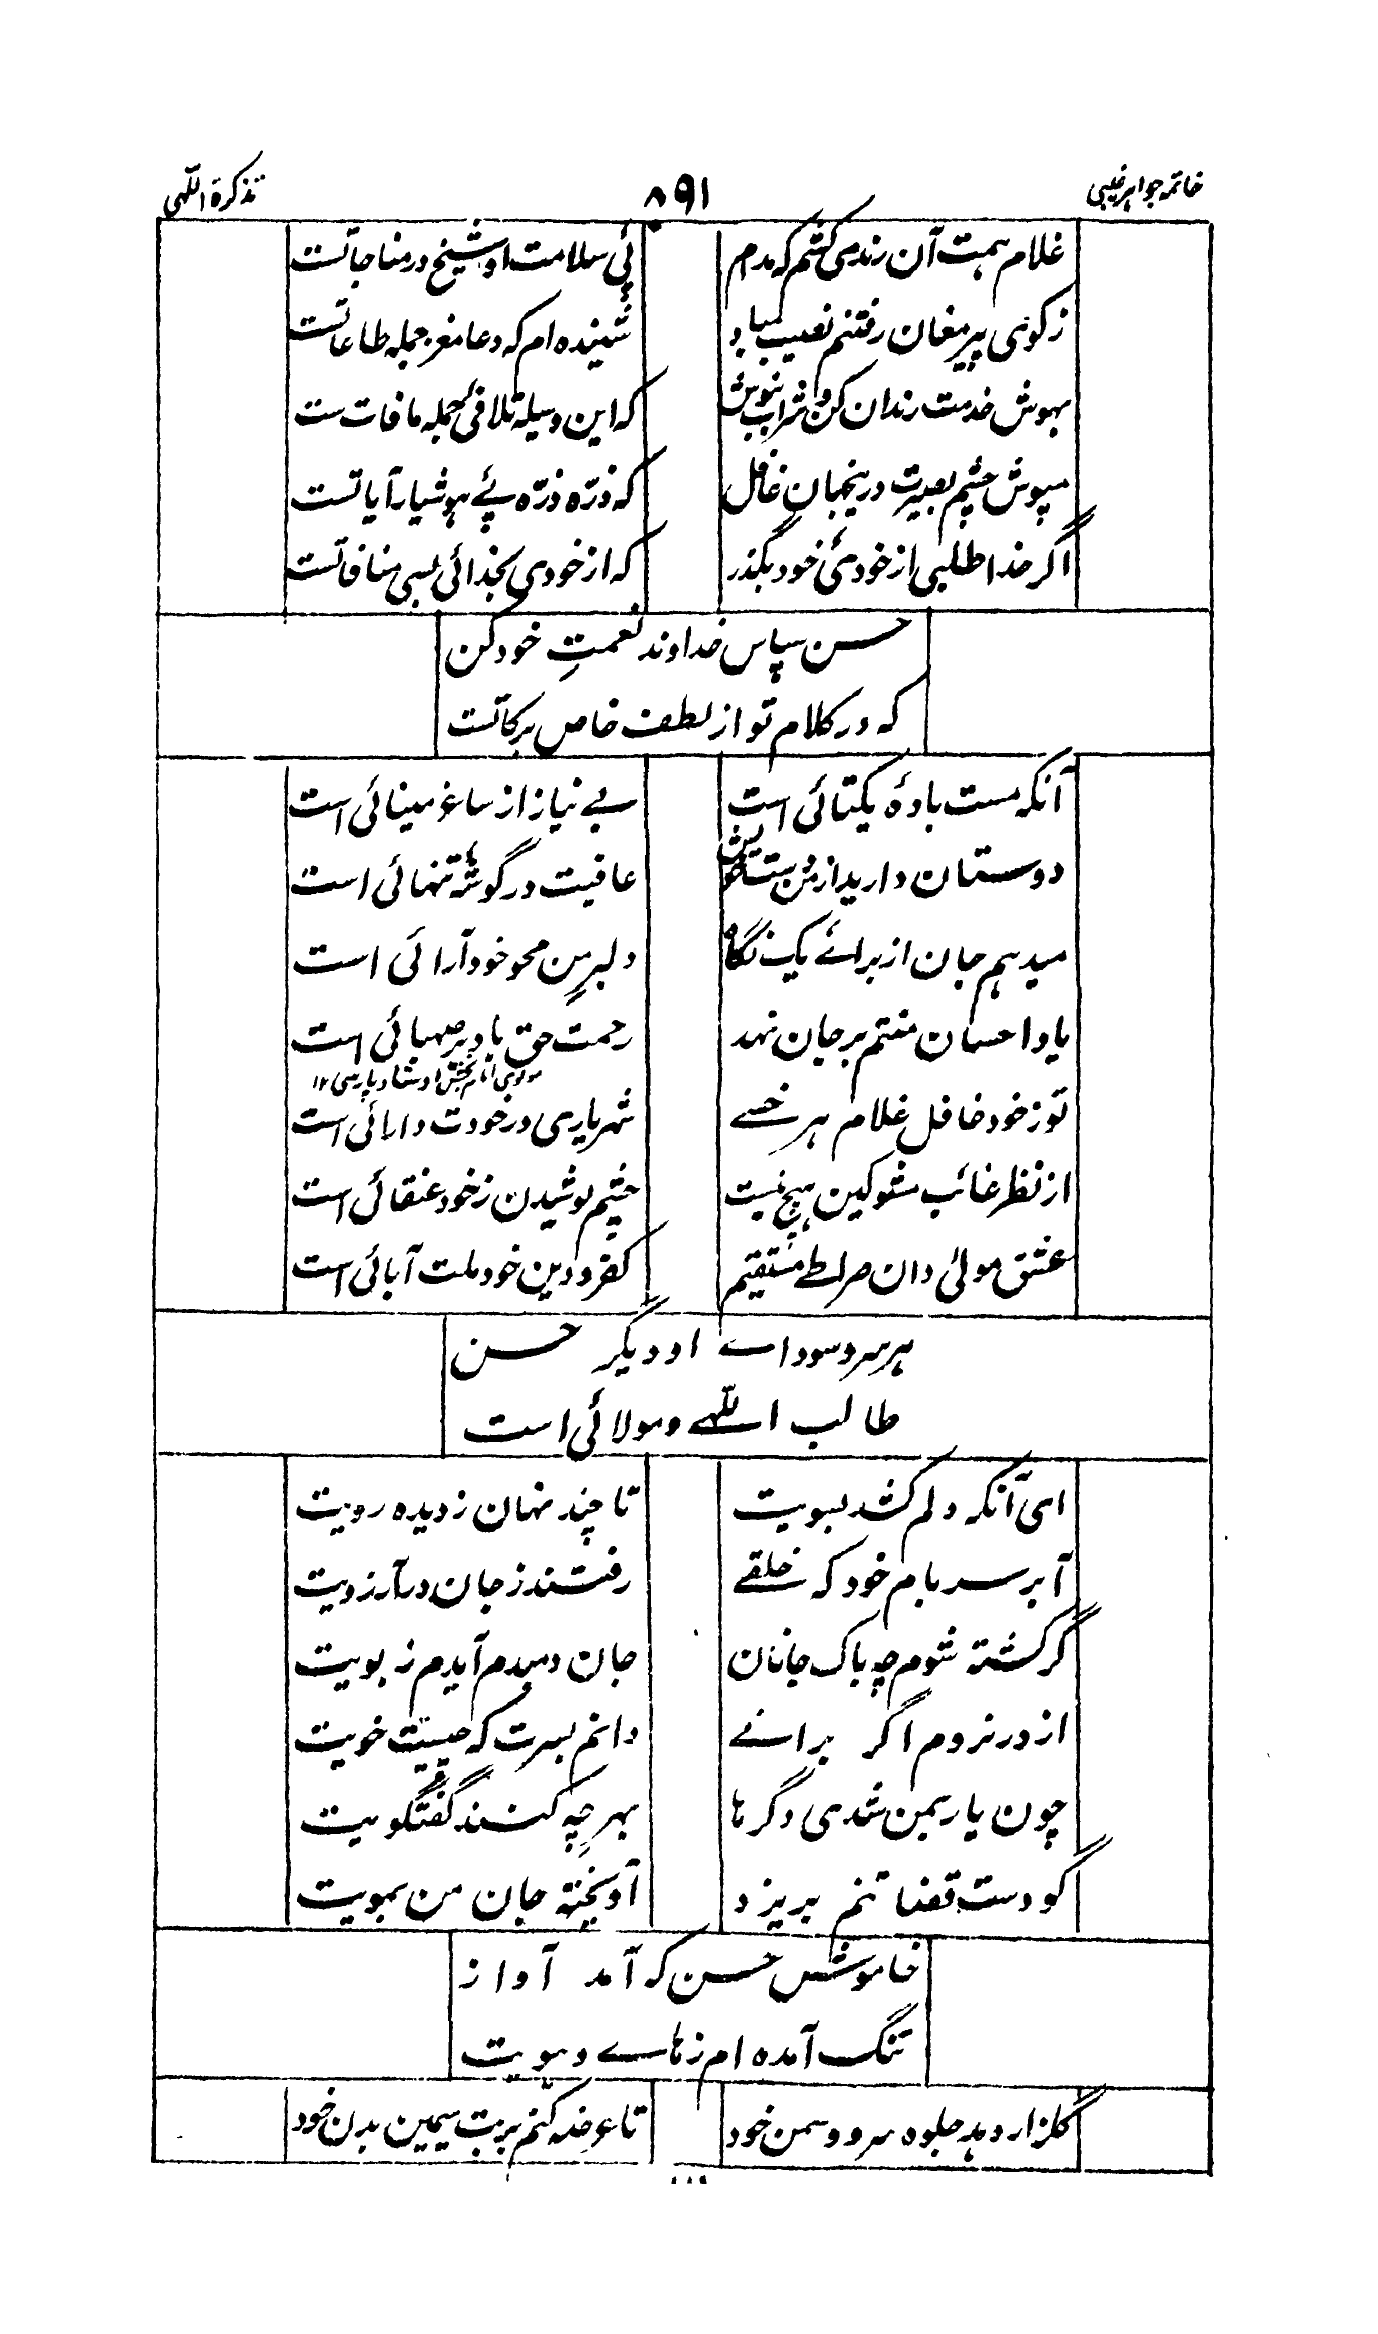 خاتمه جواہر غیبی
۸۹۱
تذکرة اللّٰہی
غلام ہمت آن رندی کشم کہ مدام
پئی سلامت او شیخ در مناجاتست
ز کوی پیر مغان رفتنم نصیب مباد
شنیده ام کہ دعا مغز جملہ طاعاتست
بہوش خدمت رندان کن و شراب بنوش
کہ این وسیلہ تلافئ جملہ مافات ست
مپوش چشم بصیرت درینجہان غافل
کہ ذرّه ذرّه پئے ہوشیار آیاتست
اگر خدا طلبی از خودئ خود بگذر
کہ از خودی بخدائی بسی منافاتست
حسن سپاس خداوند نعمتِ خود کن
کہ در کلام تو از لطف خاص برکاتست
آنکہ مست بادهٔ یکتائی است
بے نیاز از ساغر مینائی است
دوستان دارید از من دست خویش
عافیت در گوشۂ تنہائی است
میدہم جان از برائے یک نگاه
دلبر من محو خود آرائی است
یاد احسان منتم بر جان نہد
رحمت حق باد بر صہبائی است
مولوی امام بخش اوستاد پارسی ۱۲
تو ز خود غافل غلام ہر خسے
شہریاری در خودت دارائی است
از نظر غائب مشو کین ہیچ نیست
چشم پوشیدن ز خود عنقائی است
عشق مولیٰ دان صراطے مستقیم
کفر و دین خود ملت آبائی است
ہر سر و سوداے او دیگر حسن
طالب اللّٰہے و مولائی است
ای آنکہ دلم کشد بسویت
تا چند نہان ز دیده رویت
آ بر سر بام خود کہ خلقے
رفتند ز جان در آرزویت
گر کشتہ شوم چہ باک جانان
جان دمبدم آیدم ز بویت
از در نروم اگر برانے
دانم بسرت کہ چیست خویت
چون یار بمن شدی دگرہا
بہر چہ کنند گفتگویت
گو دست قضا تنم بریزد
آویختہ جان من بمویت
خاموش حسن کہ آمد آواز
تنگ آمده ام ز ہاے و ہویت
گلزار دہد جلوه سرو و سمن خود
تا عرضہ کنم بر بت سیمین بدن خود